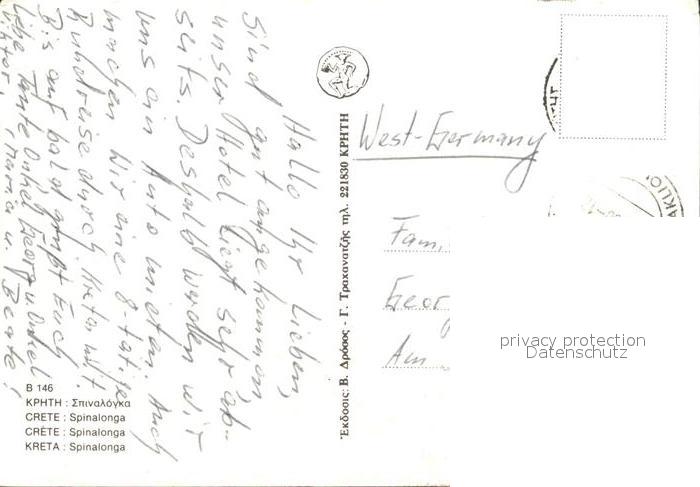 Hallo Ihr Lieben,
Sind gut angekommen
unser Hotel liegt sehr ab-
seits. Deshalb werden wir
uns ein Auto mieten. Auch
machen wir eine 8-tätige
Rundreise durch Kreta mit.
Bis auf bald grüßt Euch
liebe Tante Onkel Georg u. Onkel
Maria u. Beate!
B 146
ΚΡΗΤΗ : Σπιναλόγκα
CRETE : Spinalonga
CRÈTE : Spinalonga
KRETA : Spinalonga
Ἔκδοσις: Β. Δρόσος - Γ. Τραχανατζῆς τηλ. 221830 ΚΡΗΤΗ
West-Germany
Fam.
Georg
Am
privacy protection
Datenschutz